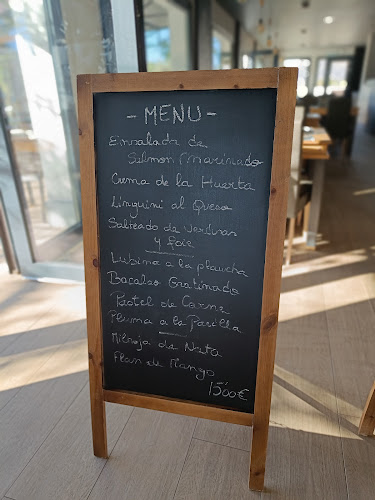 - MENU -
Ensalada de
Salmon Marinado
Crema de la Huerta
Linguini al Queso
Salteado de verduras
y foie
Lubina a la plancha
Bacalao Gratinado
Pastel de Carne
Pluma a la Parilla
Milhoja de Nata
Flan de Mango
15'00€